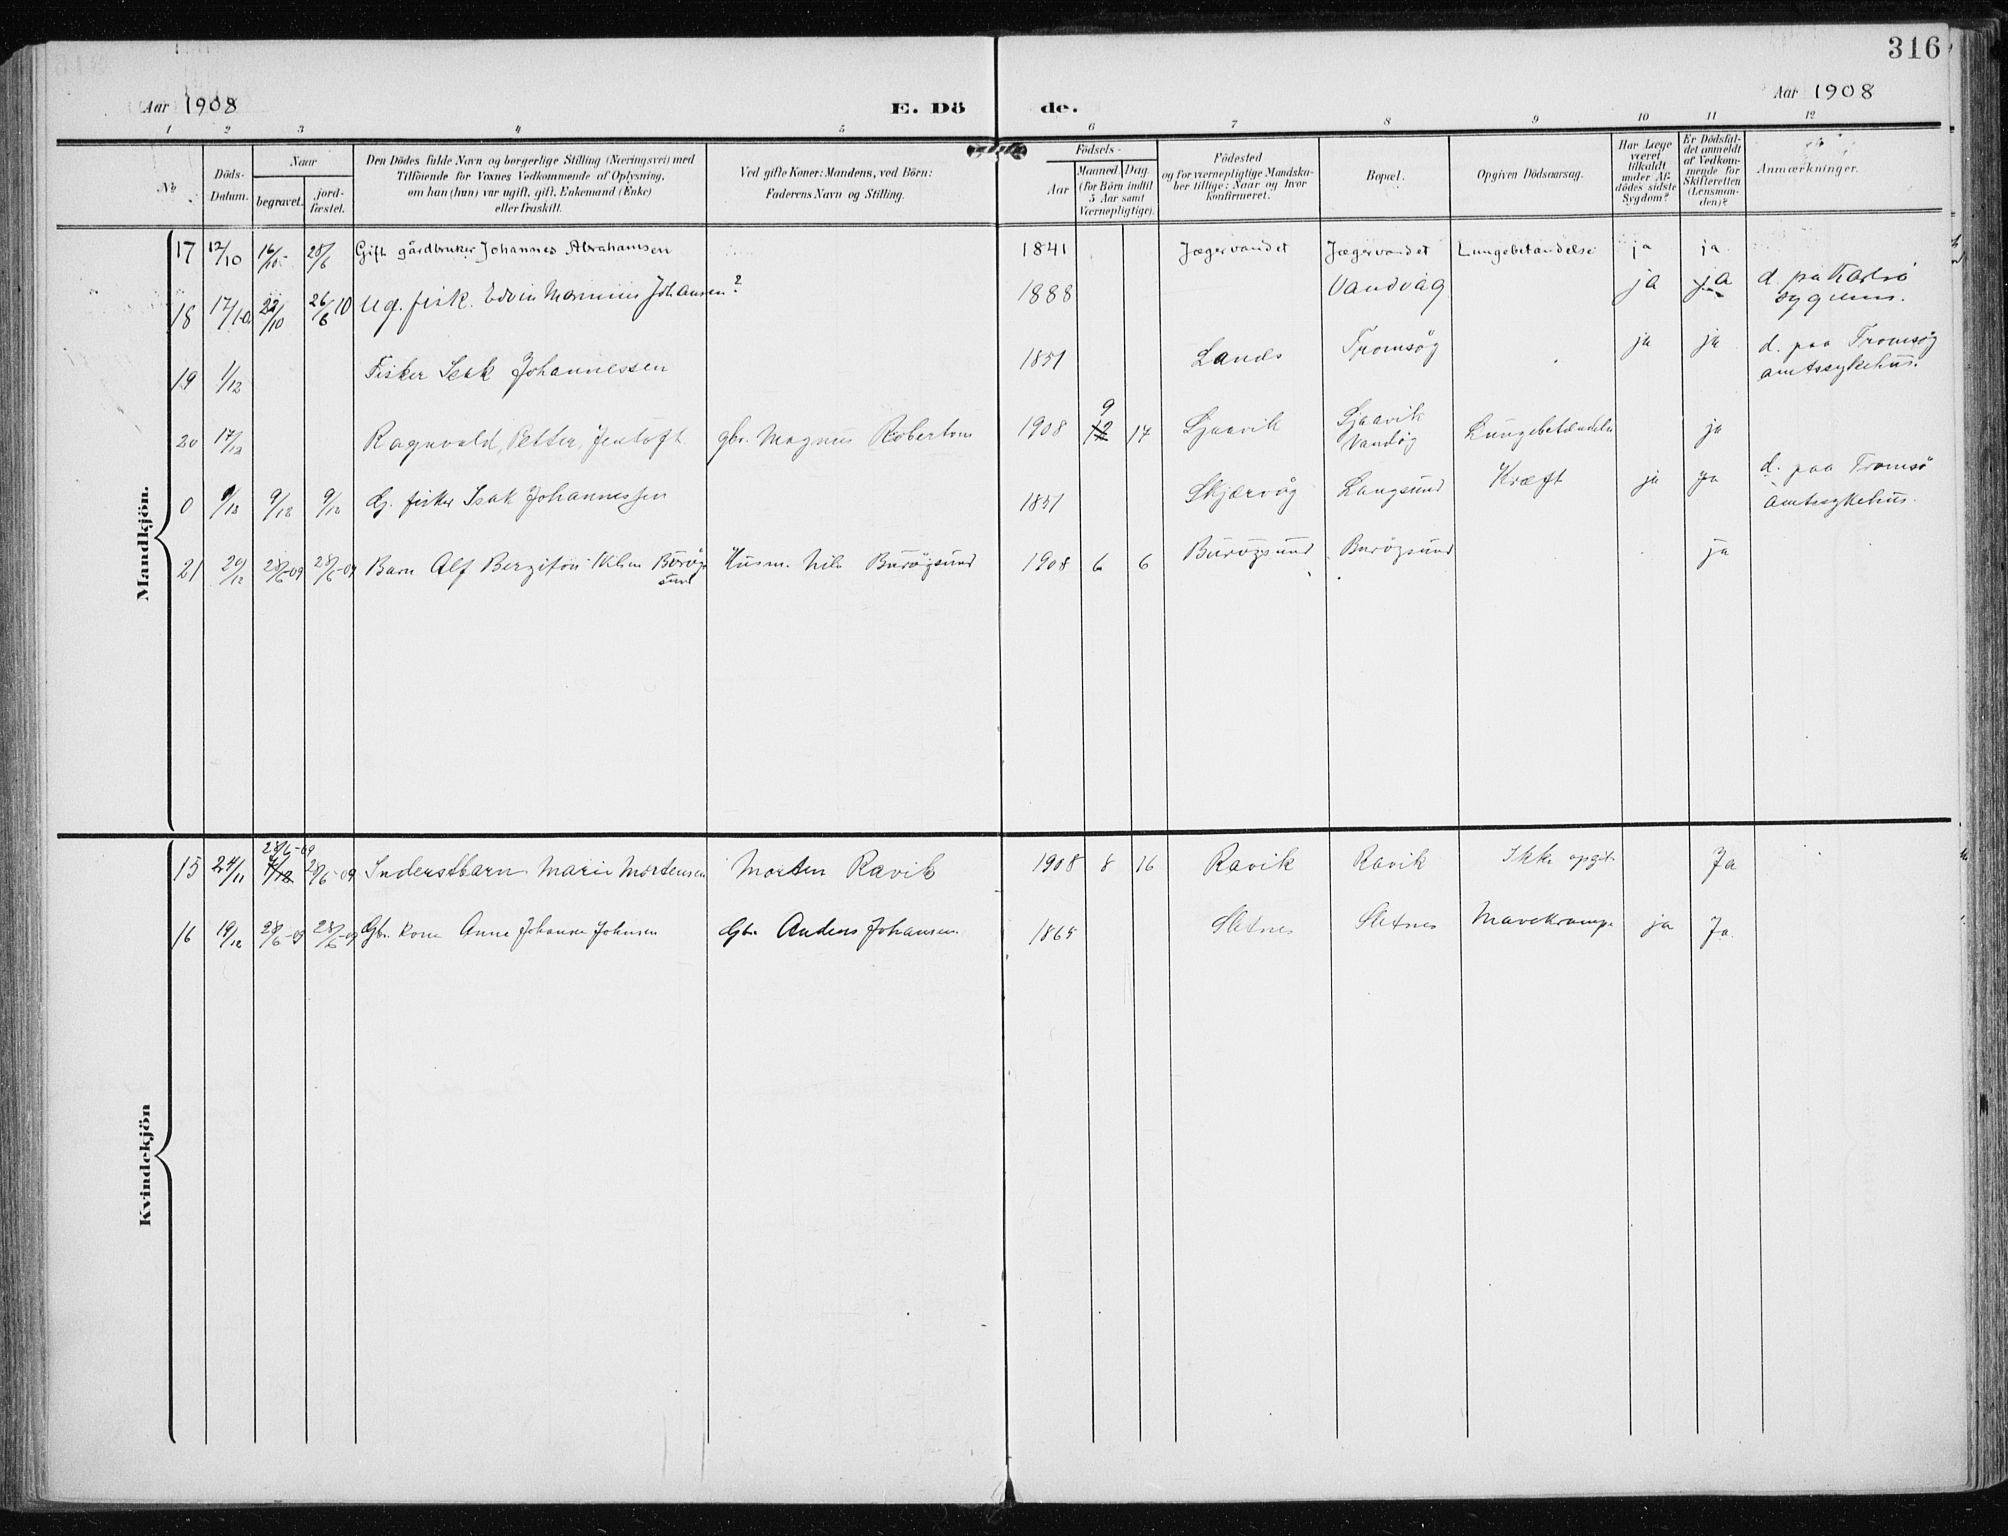 316
Aar 1908 E. Dö de. Aar 1908
1 2 3 4 5 6 7 8 9 10 11 12
№
Döds-Datum.
Naar
begravet.
jord-fæstet.
Den Dödes fulde Navn og borgerlige Stilling (Næringsvei) med
Tilföiende for Voxnes Vedkommende af Oplysning,
om han (hun) var ugift, gift, Enkemand (Enke)
eller fraskilt.
Ved gifte Koner: Mandens, ved Börn:
Faderens Navn og Stilling.
Födsels-
Aar
Maaned. Dag.
(for Börn indtil
5 Aar samt
Værnepligtige).
Födested
og for værnepligtige Mandska-
ber tillige: Naar og hvor
konfirmeret.
Bopæl.
Opgiven Dödsaarsag.
Har Læge
været
tilkaldt
under Af-
dödes sidste
Sygdom?
Er Dödsfal-
det anmeldt
af Vedkom-
mende for
Skifteretten
(Lensman-
den)?
Anmærkninger.
Mandkjön.
17 12/10 16/10 28/6 Gift gårdbruker Johannes Abrahamsen 1841 Jægervandet Jægervandet Lungebetændelse ja ja
18 17/10 22/10 26/6 10 Ug. fisk. Edvin Marinius Johansen ? 1888 Vandvåg ja ja d. på Karlsö
sygehus.
19 1/12 Fisker Isak Johannessen 1851 Lands Tromsög ja ja d. paa Tromsög
amtssykehus.
20 17/12 Ragnvald, Petter, Jentoft gbr. Magnus Robertsen 1908 9 12 17 Ljaavik Ljaavik
Vandög Lungebetændelse ja
0 1/12 9/12 9/12 G. fisker Isak Johannessen 1851 Skjærvög Langsund Kræft ja ja d. paa Tromsö
Amtssykehus.
21 20/12 28/6-09 28/6-09 Barn Alf Bergiton Nilsen Burög
sund Husm. Nils Burögsund 1908 6 6 Burögsund Burögsund ja
Kvindekjön
15 24/11 28/6-09 28/6-09 Inderstbarn Marie Mortensen Morten Ravik 1908 8 16 Ravik Ravik Ikke opgit Ja
16 19/12 28/6-09 28/6-09 Gbr. kone Anne Johanne Johnsen Gbr. Anders Johansen 1865 Sletnes Sletnes Mavekrampe ja Ja.